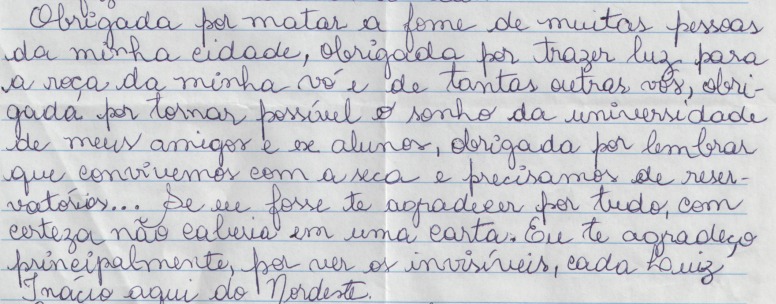 Obrigada por matar a fome de muitas pessoas
da minha cidade, obrigada por trazer luz para
a roça da minha vó e de tantas outras vós, obri-
gada por tornar possível o sonho da universidade
de meus amigos e ex alunos, obrigada por lembrar
que convivemos com a seca e precisamos de reser-
vatórios... Se eu fosse te agradecer por tudo, com
certeza não caberia em uma carta. Eu te agradeço
principalmente, por ver os invisíveis, cada Luiz
Inácio aqui do Nordeste.